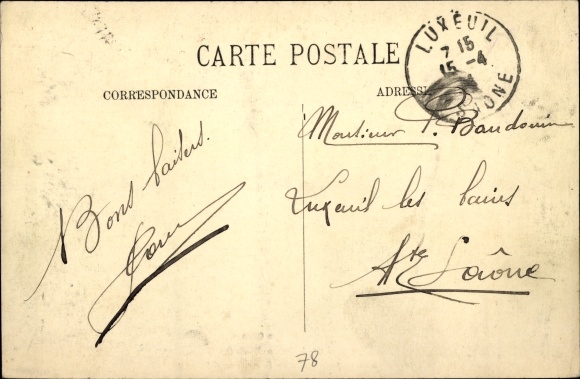 CARTE POSTALE
CORRESPONDANCE
ADRESSE
LUXEUIL
7 15
15 -4
SAONE
Bons baisers.
Monsieur P. Baudouin
Luxeuil les bains
Hte Saône
78